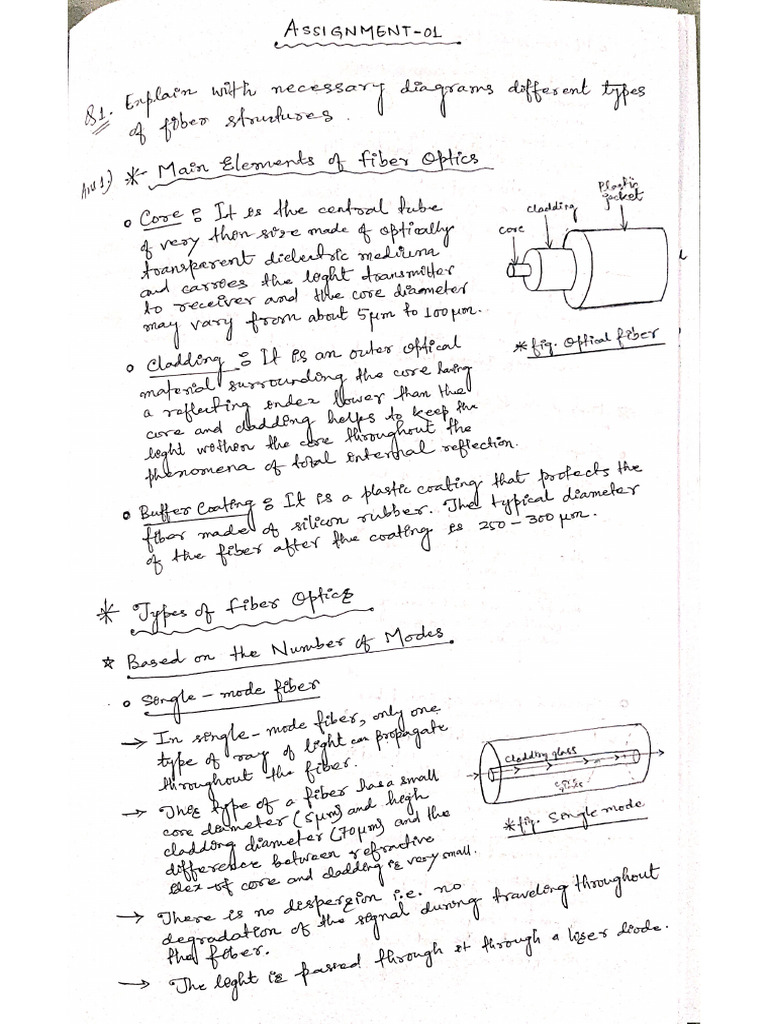 ASSIGNMENT-01
Q1. Explain with necessary diagrams different types
of fiber structures.
Ans1.) * Main Elements of Fiber Optics
Core : It is the central tube
of very thin size made of optically
transparent dielectric medium
and carries the light transmitter
to receiver and the core diameter
may vary from about 5μm to 100μm.
core
cladding
Plastic
jacket
*fig. Optical fiber
Cladding : It is an outer optical
material surrounding the core having
a reflecting index lower than the
core and cladding helps to keep the
light within the core throughout the
phenomena of total internal reflection.
Buffer Coating : It is a plastic coating that protects the
fiber made of silicon rubber. The typical diameter
of the fiber after the coating is 250-300 μm.
* Types of Fiber Optics
☆ Based on the Number of Modes.
Single-mode fiber
→ In single-mode fiber, only one
type of ray of light can propagate
throughout the fiber.
→ This type of a fiber has a small
core diameter (5μm) and high
cladding diameter (70μm) and the
difference between refractive
index of core and cladding is very small.
cladding glass
core
*fig. Single mode
→ There is no dispersion i.e. no
degradation of the signal during traveling throughout
the fiber.
→ The light is passed through it through a laser diode.